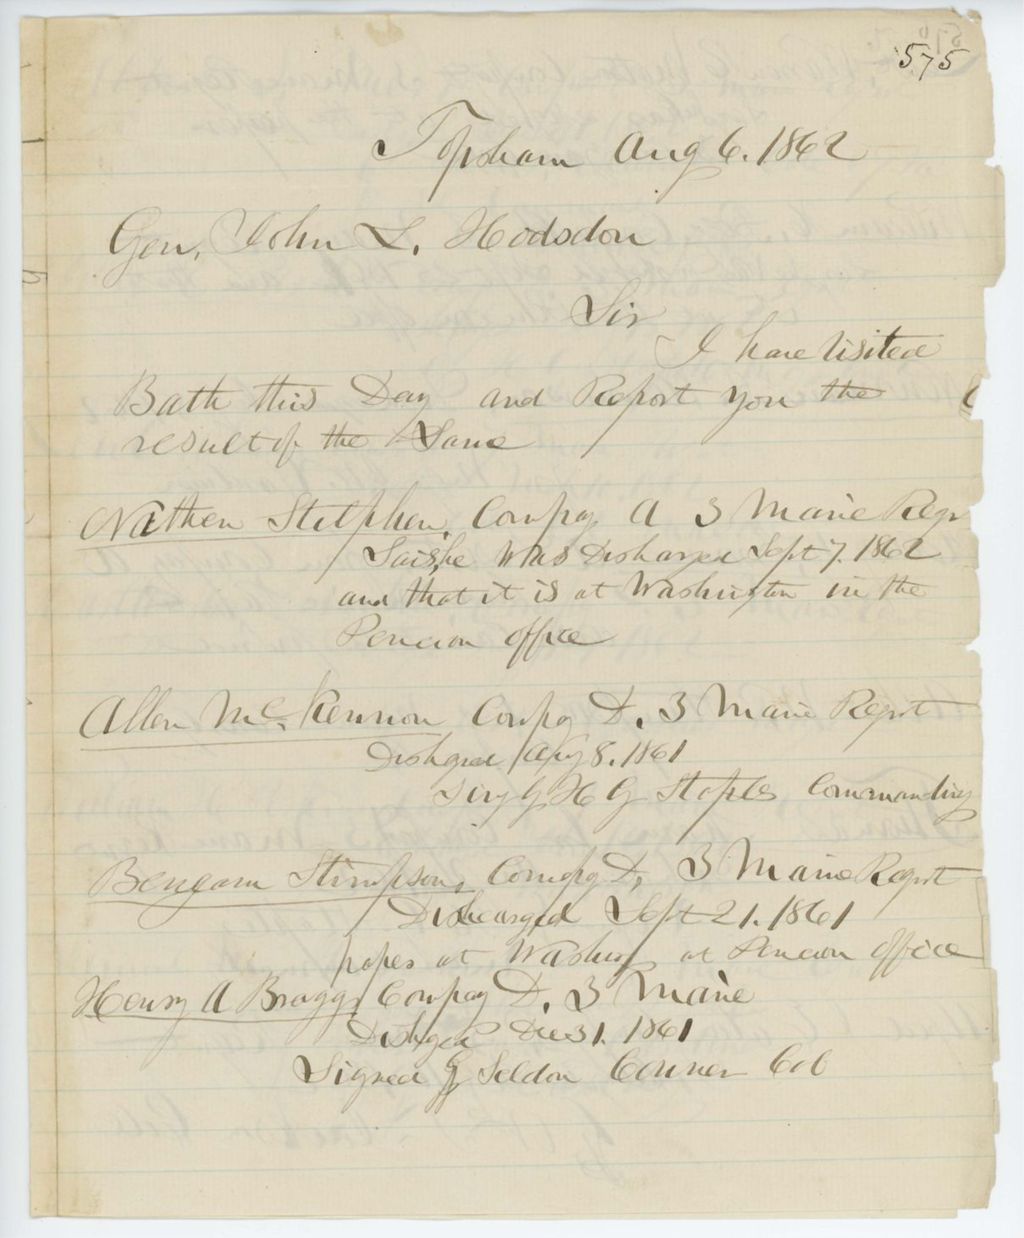 575
Topsham Aug 6. 1862
Gen. John L. Hodsdon
Sir
I have visited
Bath this Day and Report you the
result of the Same
Nathen Stelphen, Compay A 3 Maine Regt
Said he was Discharged Sept 7. 1862
and that it is at Washington in the
Pencion office
Allen McKennon Compy D. 3 Maine Regmt
Dishged Aug 8. 1861
by H G Staples Commanding
Bengam Stimpson, Compy D, 3 Maine Regmt
Dishcarged Sept 21. 1861
papes at Washing at Pencion office
Henry A Bragg, Compay D. 3 Maine
Dishged Dec 31. 1861
Signed Seldon Conner Col